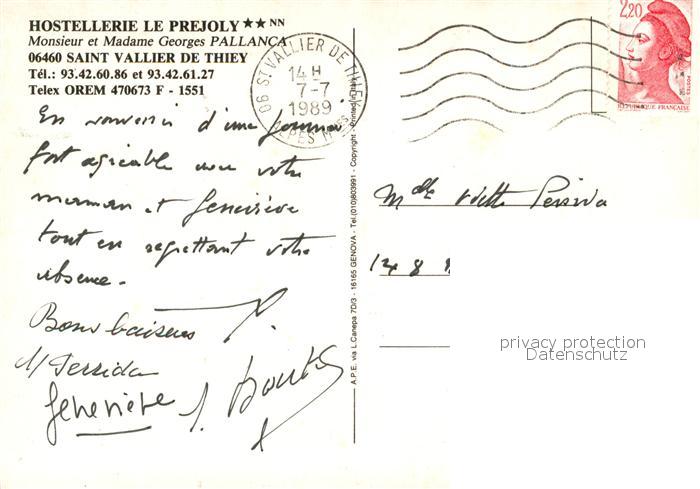 HOSTELLERIE LE PREJOLY ★★ NN
Monsieur et Madame Georges PALLANCA
06460 SAINT VALLIER DE THIEY
Tél.: 93.42.60.86 et 93.42.61.27
Telex OREM 470673 F - 1551
En souvenir d'une journée
fort agréable avec votre
maman et Geneviève
tout en regrettant votre
absence.
Bons baisers
Geneviève
06 ST VALLIER DE THIEY
14 H
7-7
1989
ALPES MMES
2,20
POSTES
REPUBLIQUE FRANÇAISE
A.P.E. via L.Canepa 7D/3 - 16165 GENOVA - Tel.(010)803991 - Copyright - Printed in Italy
Melle Odette
148
privacy protection
Datenschutz